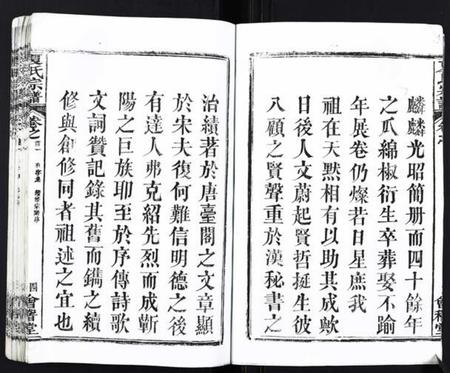 麟麟光昭簡册而四十餘年
之瓜綿椒衍生卒葬娶不踰
年展卷仍燦若日星庶我
祖在天黙相有以助其成歟
日後人文蔚起賢哲挺生彼
八顧之賢聲重於漢秘書之
治績著於唐臺閣之文章顯
於宋夫復何難信明德之後
有達人弗克紹先烈而成蘄
陽之巨族耶至於序傳詩歌
文詞贊記錄其舊而鐫之續
修與創修同者祖述之宜也
氏宗譜
卷之
四
會
堂